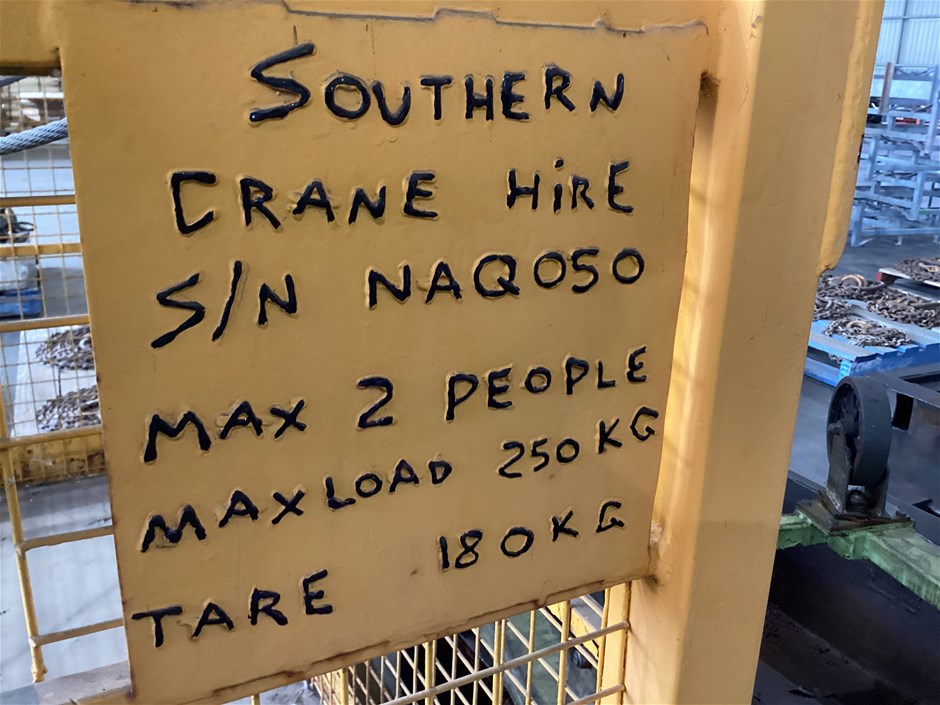 SOUTHERN
CRANE HiRE
S/N NAQ050
MAX 2 PEOPLE
MAXLOAD 250KG
TARE 180KG